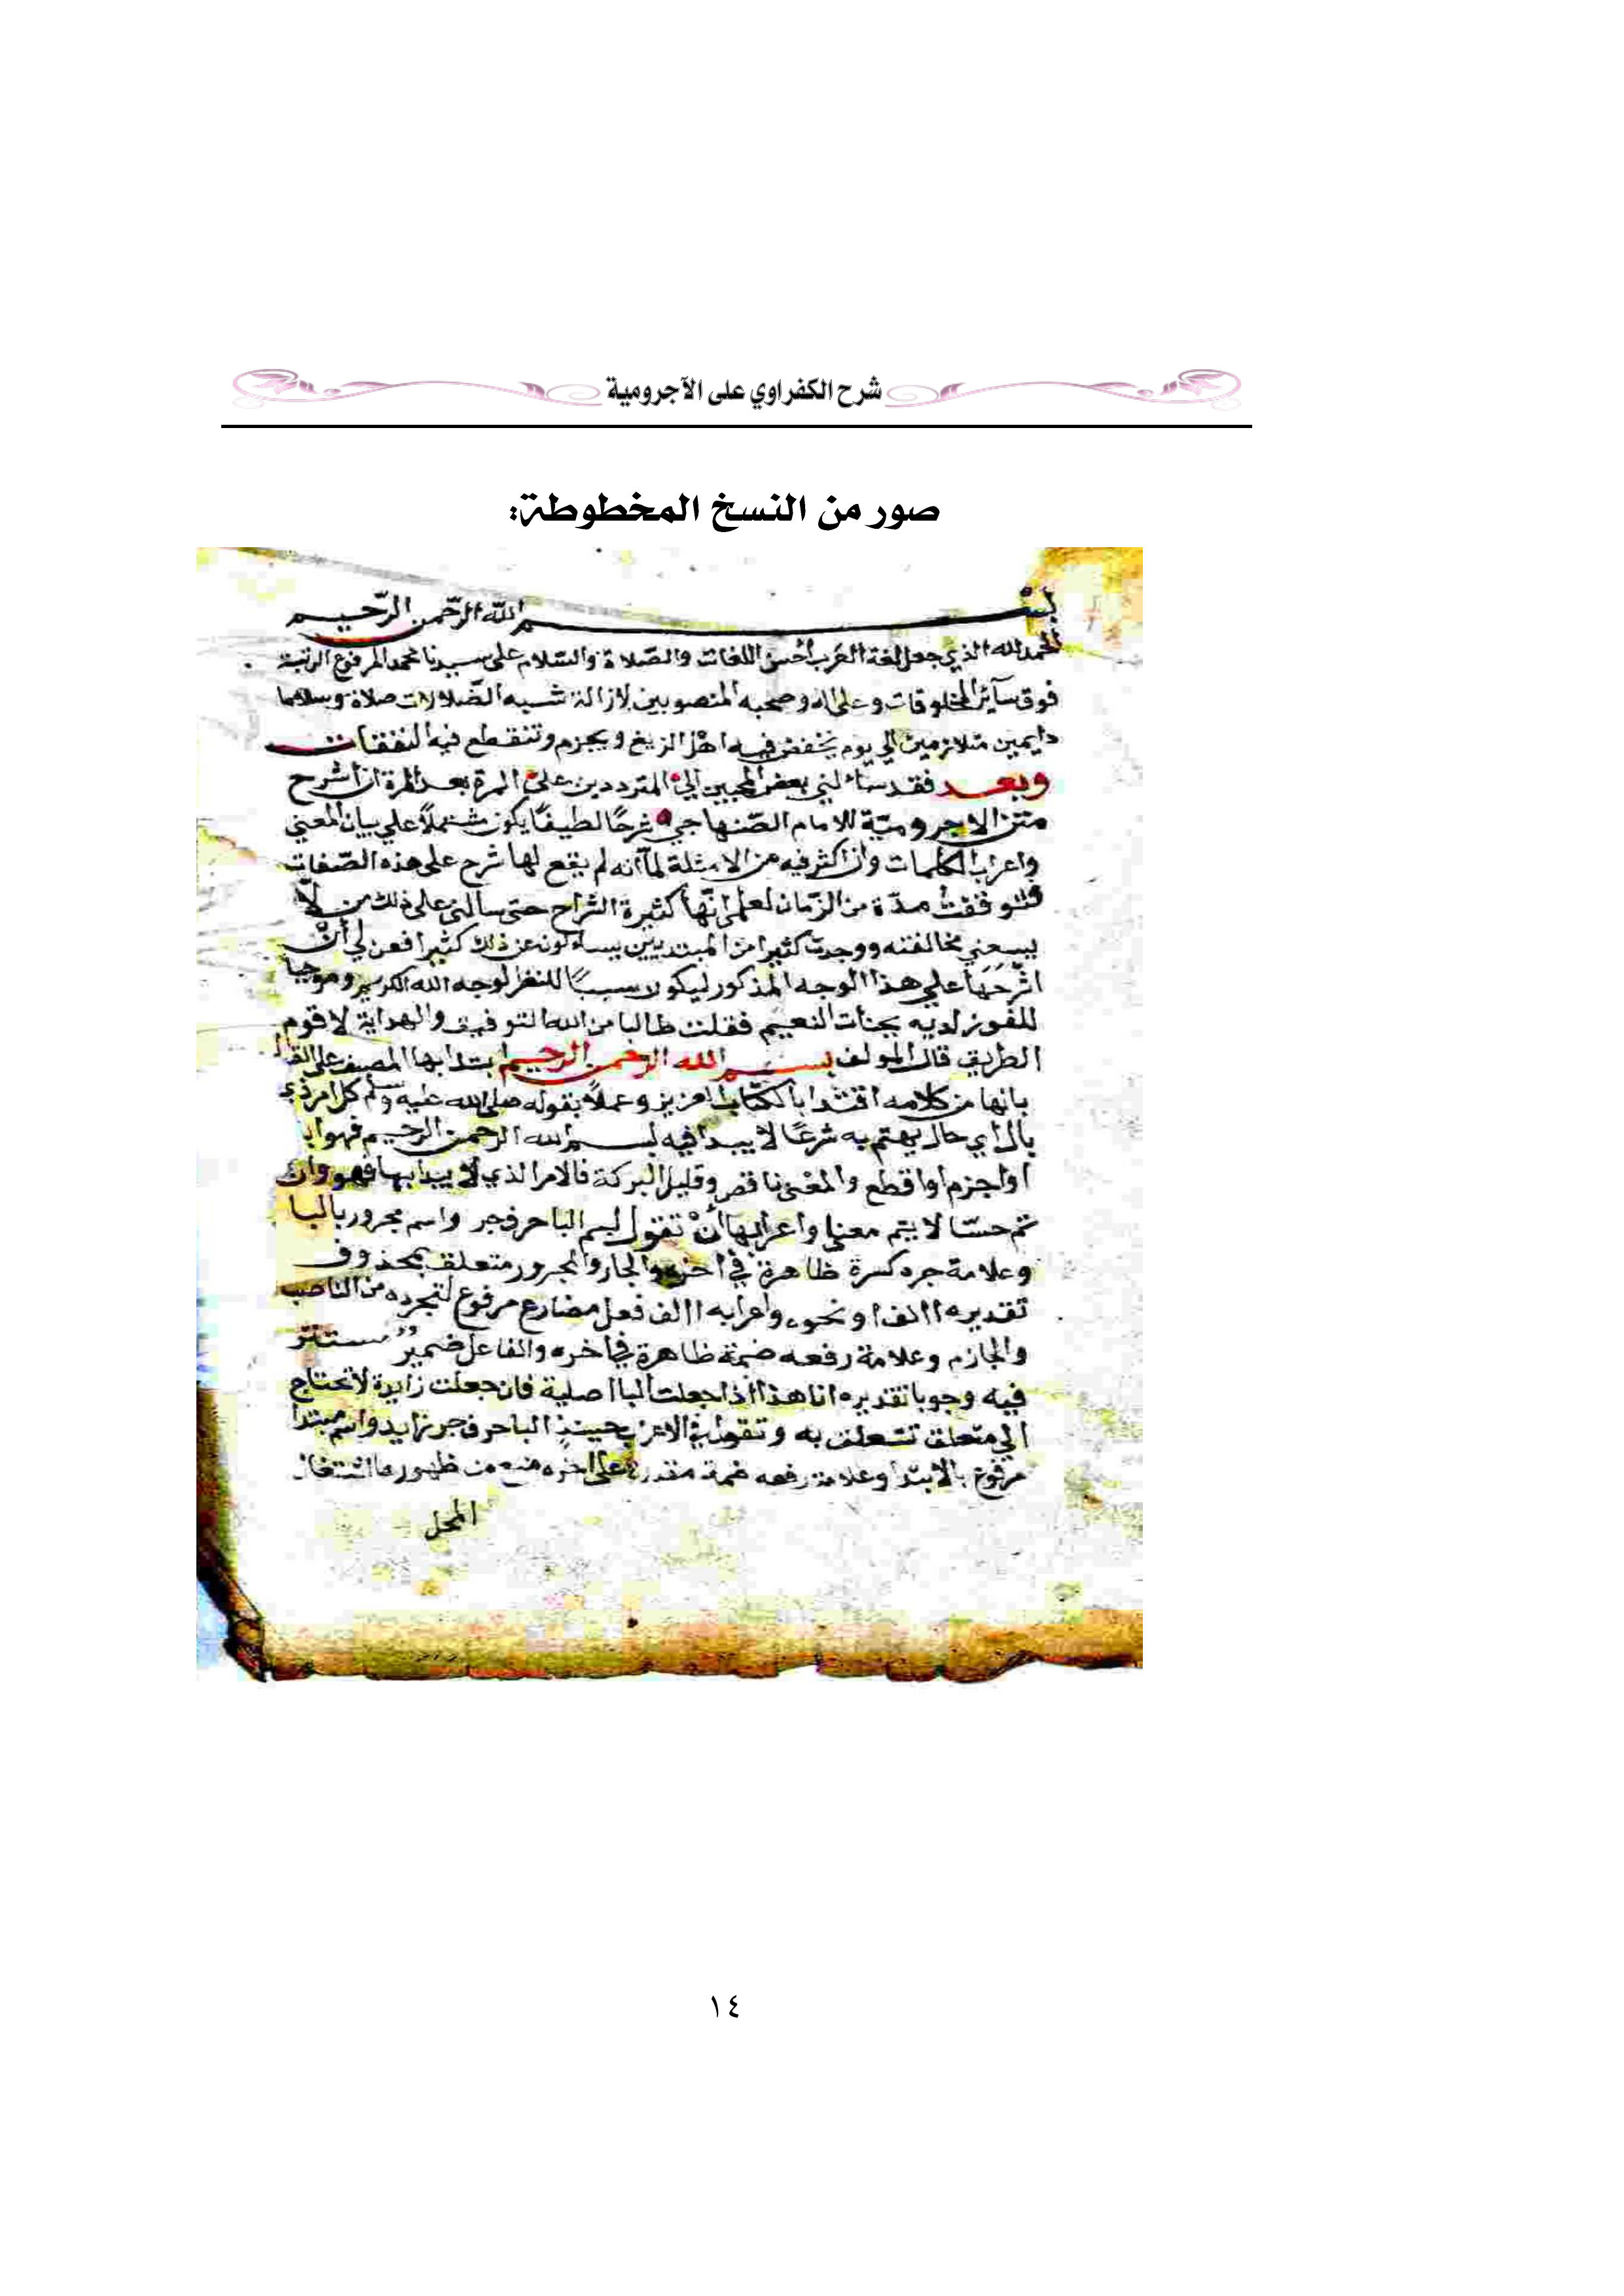 شرح الكفراوي على الآجرومية
صور من النسخ المخطوطة:
بسم الله الرحمن الرحيم
الحمد لله الذي جعل لغة العرب أحسن اللغات والصلاة والسلام على سيدنا محمد المرفوع الرتبة
فوق سآئر المخلوقات وعلى اله وصحبه المنصوبين لازالة شبه الضلالات صلاة وسلاما
دايمين متلازمين الي يوم يخفض فيه اهل الزيغ ويجزم وتنقطع فيه النفقات
وبعد فقد سألني بعض المحبين الي المترددين علي المرة بعد المرة ان اشرح
متن الاجرومية للامام الصنهاجي شرحا لطيفا يكون مشتملا علي بيان المعني
واعراب الكلمات وان اكثر فيه من الامثلة لما انه لم يقع لها شرح على هذه الصفات
فتوقفت مدة من الزمان لعلمي انها كثيرة الشراح حتى سالني على ذلك من لا
يسعني مخالفته ووجدت كثيرا من المبتديين يسالون عن ذلك كثيرا فعن لي أن
اشرحها علي هذا الوجه المذكور ليكون سببا للنظر لوجه الله الكريم وموجبا
للفوز لديه بجنات النعيم فقلت طالبا من الله التوفيق والهداية لاقوم
الطريق قال المولف بسم الله الرحمن الرحيم ابتدا بها المصنف على القول
بانها من كلامه اقتدا بالكتاب العزيز وعملا بقوله صلى الله عليه وسلم كل امر ذي
بال اي حال يهتم به شرعا لا يبدا فيه ببسم الله الرحمن الرحيم فهو ابتر
او اجزم او اقطع والمعنى ناقص وقليل البركة فالامر الذي لا يبدا بها فهو وان
تم حسا لا يتم معني واعرابها أن تقول بسم البا حرف جر واسم مجرور بالبا
وعلامة جره كسرة ظاهرة في اخره والجار والمجرور متعلق بمحذوف
تقديره االف او نحوه واعرابه االف فعل مضارع مرفوع لتجرده من الناصب
والجازم وعلامة رفعه ضمة ظاهرة في اخره والفاعل ضمير مستتر
فيه وجوبا تقديره انا هذا اذا جعلت البا اصلية فان جعلت زايدة لا تحتاج
الي متعلق تتعلق به وتقول في الاعراب حينيذ البا حرف جر زايد واسم مبتدا
مرفوع بالابتدا وعلامة رفعه ضمة مقدرة على اخره منع من ظهورها اشتغال
المحل
١٤